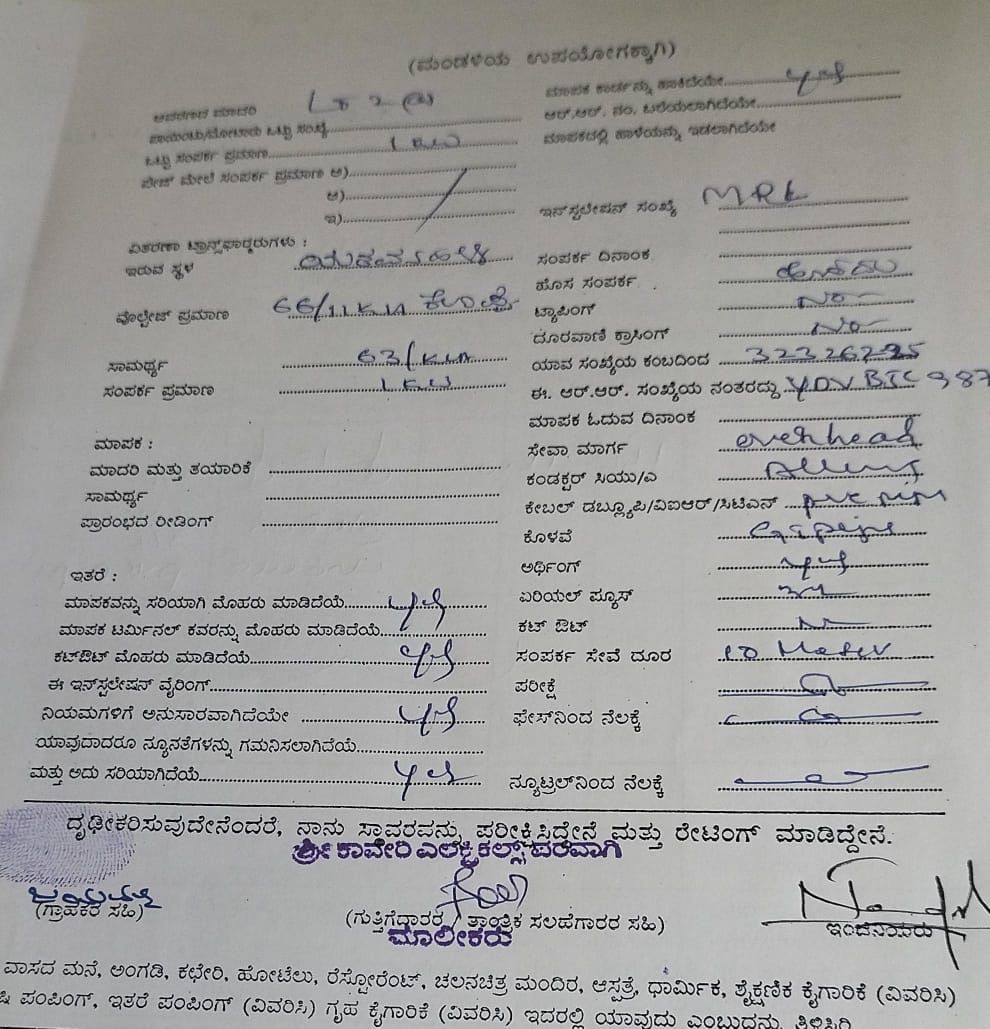 (ಮಂಡಳಿಯ ಉಪಯೋಗಕ್ಕಾಗಿ)
ಮಾಪಕ ಕಾರ್ಡನ್ನು ಹಾಕಿದೆಯೇ yes
ಆರ್.ಆರ್. ನಂ. ಬರೆಯಲಾಗಿದೆಯೇ
ಒಟ್ಟು ಸಂಖ್ಯೆ
ಮಾಪಕದಲ್ಲಿ ಹಾಳೆಯನ್ನು ಇಡಲಾಗಿದೆಯೇ
ಒಟ್ಟು ಸಂಪರ್ಕ ಪ್ರಮಾಣ 1 KW
ಪೇಜ್ ಮೇಲೆ ಸಂಪರ್ಕ ಪ್ರಮಾಣ ಅ)
ಆ)
ಇ)
ಇನ್‌ಸ್ಟಲೇಷನ್ ಸಂಖ್ಯೆ
ವಿತರಣಾ ಟ್ರಾನ್ಸ್‌ಫಾರ್ಮರುಗಳು :
ಇರುವ ಸ್ಥಳ
ಸಂಪರ್ಕ ದಿನಾಂಕ
ಹೊಸ ಸಂಪರ್ಕ
ವೊಲ್ಟೇಜ್ ಪ್ರಮಾಣ 66/11
ಟ್ಯಾಪಿಂಗ್ No
ದೂರವಾಣಿ ಕ್ರಾಸಿಂಗ್ No
ಸಾಮರ್ಥ್ಯ 63/
ಯಾವ ಸಂಖ್ಯೆಯ ಕಂಬದಿಂದ
ಸಂಪರ್ಕ ಪ್ರಮಾಣ 1 KW
ಈ. ಆರ್.ಆರ್. ಸಂಖ್ಯೆಯ ನಂತರದ್ದು
ಮಾಪಕ ಓದುವ ದಿನಾಂಕ
ಮಾಪಕ :
ಸೇವಾ ಮಾರ್ಗ overhead
ಮಾದರಿ ಮತ್ತು ತಯಾರಿಕೆ
ಕಂಡಕ್ಟರ್ ಸಿಯು/ಎ
ಸಾಮರ್ಥ್ಯ
ಕೇಬಲ್ ಡಬ್ಲ್ಯೂಪಿ/ವಿಐಆರ್/ಸಿಟಿಎನ್ PVC
ಪ್ರಾರಂಭದ ರೀಡಿಂಗ್
ಕೊಳವೆ GI pipe
ಅರ್ಥಿಂಗ್ yes
ಇತರೆ :
ಮಾಪಕವನ್ನು ಸರಿಯಾಗಿ ಮೊಹರು ಮಾಡಿದೆಯೆ yes
ಏರಿಯಲ್ ಪ್ಯೂಸ್
ಮಾಪಕ ಟರ್ಮಿನಲ್ ಕವರನ್ನು ಮೊಹರು ಮಾಡಿದೆಯೆ
ಕಟ್ ಔಟ್
ಕಟ್‌ಔಟ್ ಮೊಹರು ಮಾಡಿದೆಯೆ yes
ಸಂಪರ್ಕ ಸೇವೆ ದೂರ 10 Meter
ಈ ಇನ್‌ಸ್ಟಲೇಷನ್ ವೈರಿಂಗ್
ಪರೀಕ್ಷೆ
ನಿಯಮಗಳಿಗೆ ಅನುಸಾರವಾಗಿದೆಯೇ yes
ಫೇಸ್‌ನಿಂದ ನೆಲಕ್ಕೆ
ಯಾವುದಾದರೂ ನ್ಯೂನತೆಗಳನ್ನು ಗಮನಿಸಲಾಗಿದೆಯೆ
ಮತ್ತು ಅದು ಸರಿಯಾಗಿದೆಯೆ yes
ನ್ಯೂಟ್ರಲ್‌ನಿಂದ ನೆಲಕ್ಕೆ
ದೃಢೀಕರಿಸುವುದೇನೆಂದರೆ, ನಾನು ಸ್ಥಾವರವನ್ನು ಪರೀಕ್ಷಿಸಿದ್ದೇನೆ ಮತ್ತು ರೇಟಿಂಗ್ ಮಾಡಿದ್ದೇನೆ.
ಶ್ರೀ ಕಾವೇರಿ ಎಲೆಕ್ಟ್ರಿಕಲ್ಸ್ ಪರವಾಗಿ
(ಗ್ರಾಹಕರ ಸಹಿ)
(ಗುತ್ತಿಗೆದಾರರ / ತಾಂತ್ರಿಕ ಸಲಹೆಗಾರರ ಸಹಿ)
ಮಾಲೀಕರು
ವಾಸದ ಮನೆ, ಅಂಗಡಿ, ಕಛೇರಿ, ಹೋಟೆಲು, ರೆಸ್ಟೋರೆಂಟ್, ಚಲನಚಿತ್ರ ಮಂದಿರ, ಆಸ್ಪತ್ರೆ, ಧಾರ್ಮಿಕ, ಶೈಕ್ಷಣಿಕ ಕೈಗಾರಿಕೆ (ವಿವರಿಸಿ)
ಪಂಪಿಂಗ್, ಇತರೆ ಪಂಪಿಂಗ್ (ವಿವರಿಸಿ) ಗೃಹ ಕೈಗಾರಿಕೆ (ವಿವರಿಸಿ) ಇದರಲ್ಲಿ ಯಾವುದು ಎಂಬುದನ್ನು ತಿಳಿಸಿರಿ